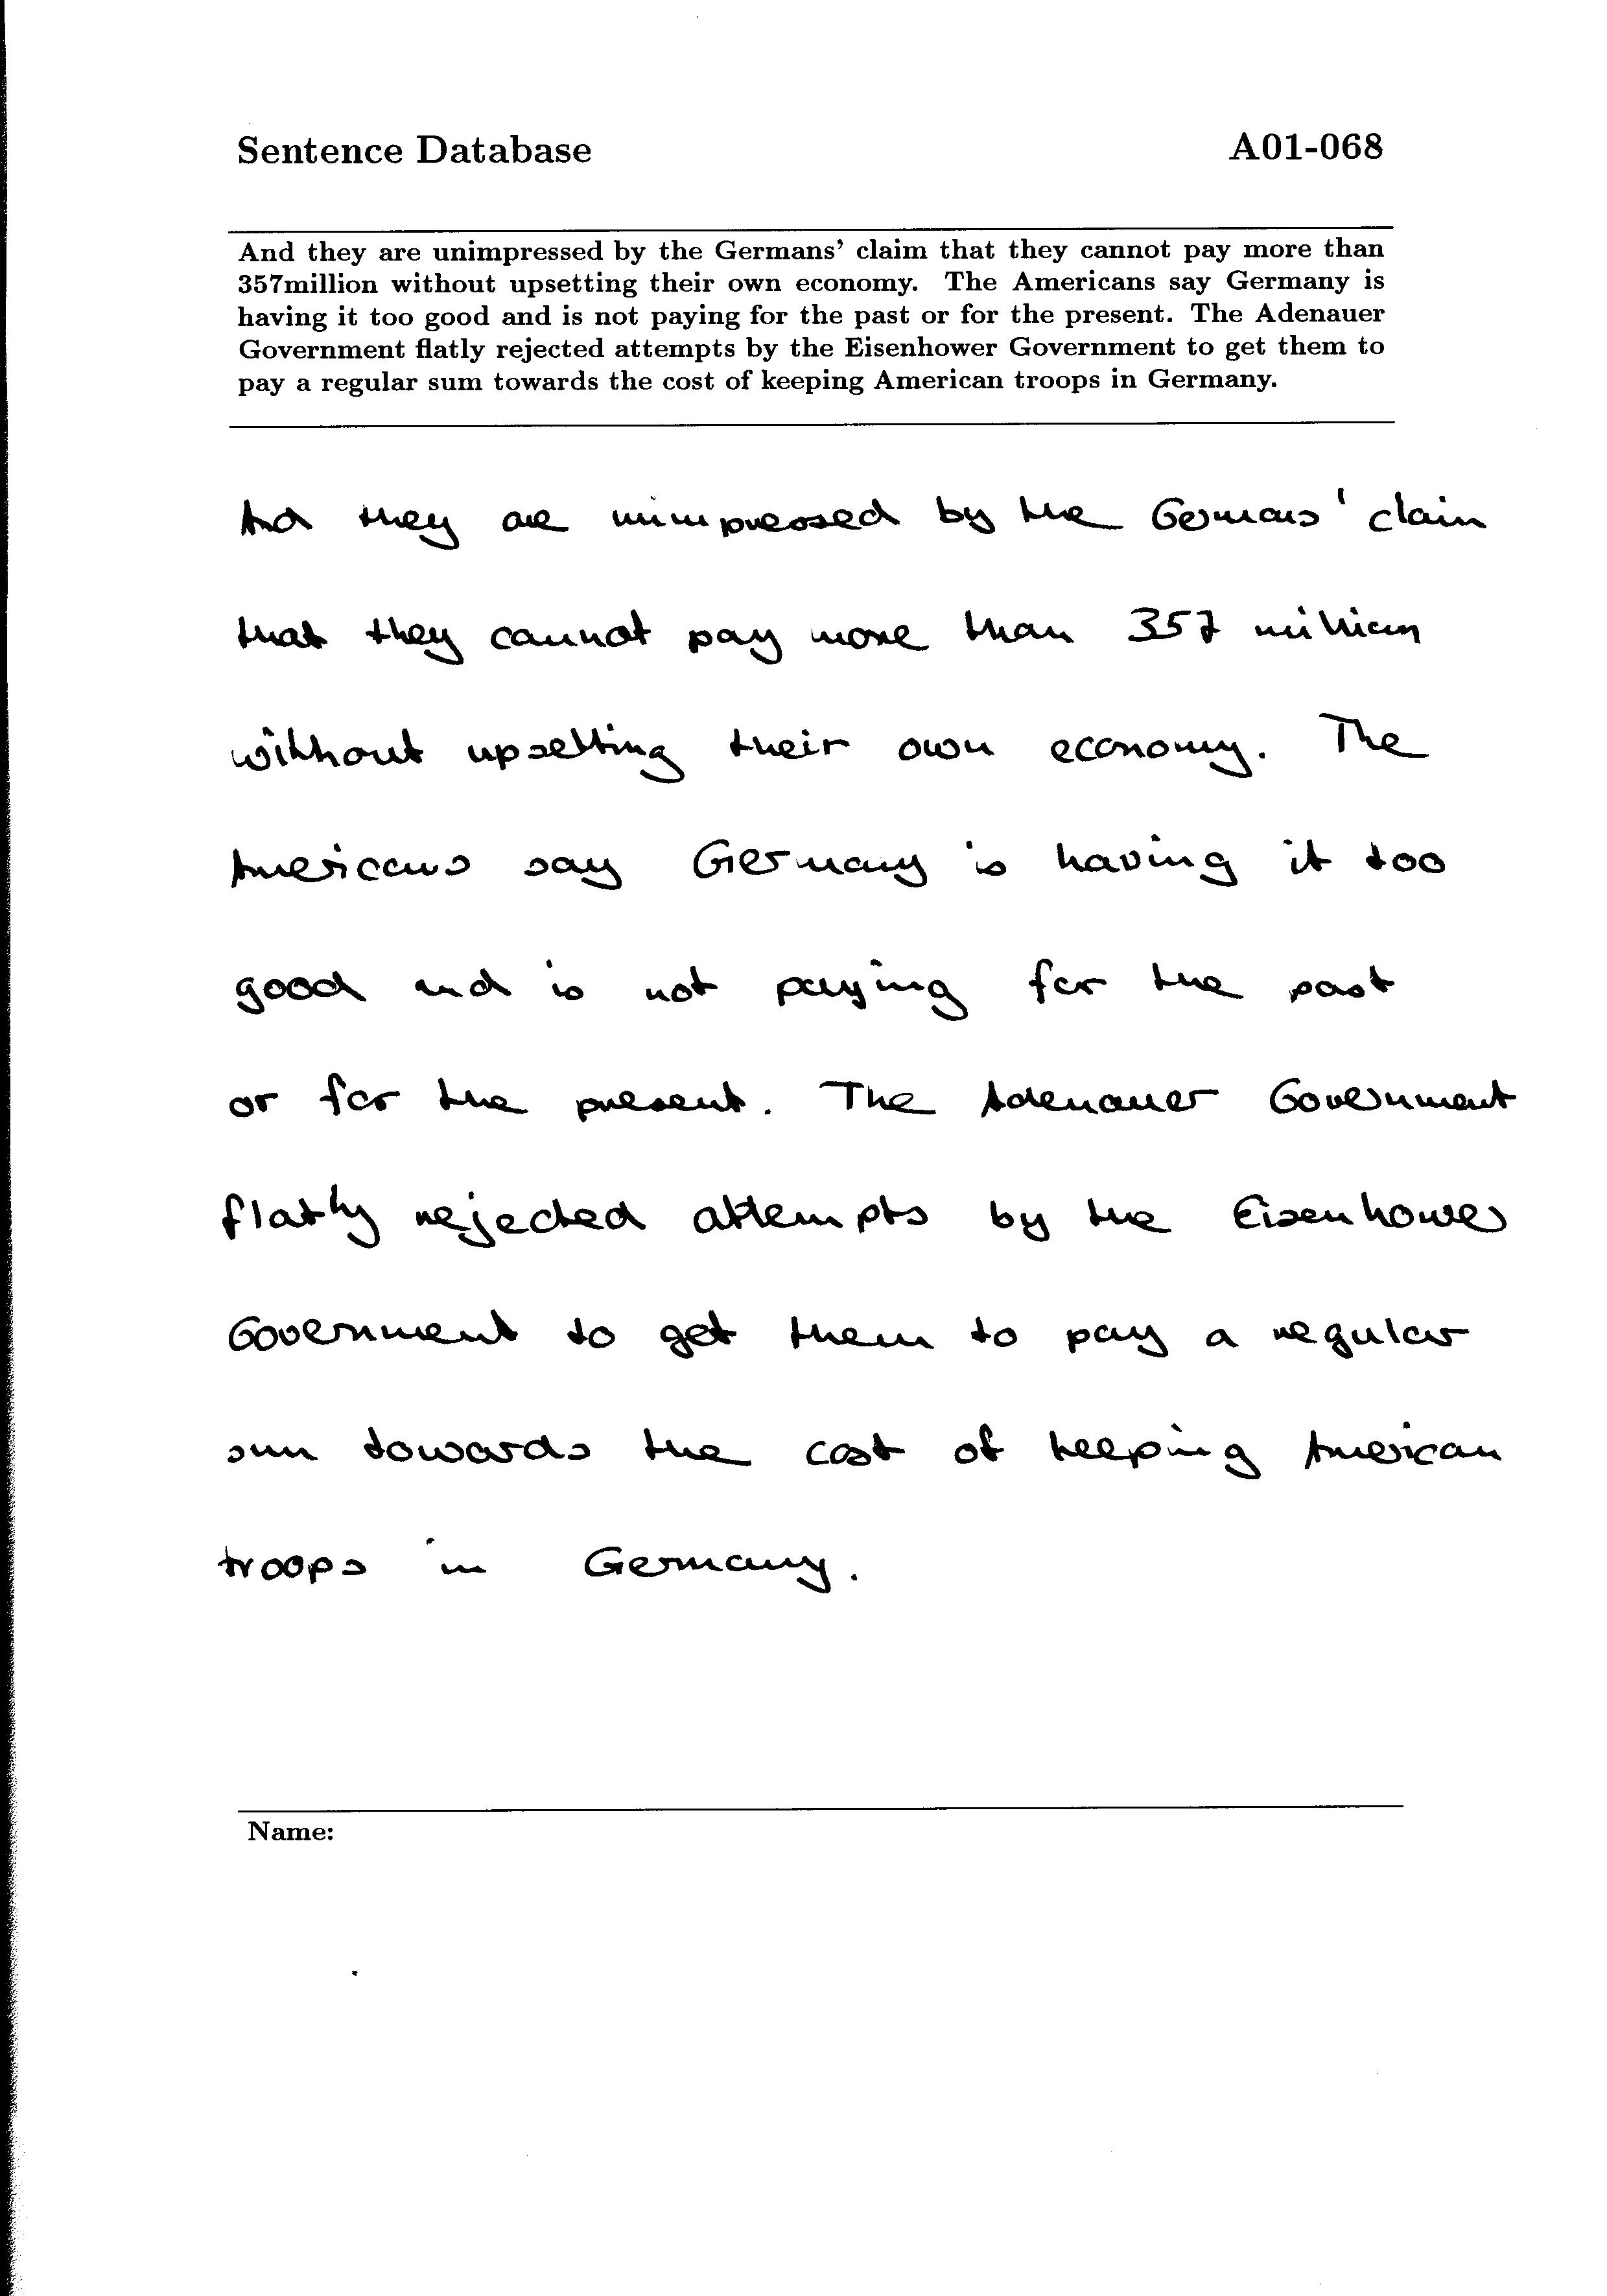 Sentence Database A01-068
And they are unimpressed by the Germans' claim that they cannot pay more than
357million without upsetting their own economy. The Americans say Germany is
having it too good and is not paying for the past or for the present. The Adenauer
Government flatly rejected attempts by the Eisenhower Government to get them to
pay a regular sum towards the cost of keeping American troops in Germany.
And they are unimpressed by the Germans' claim
that they cannot pay more than 357 million
without upsetting their own economy. The
Americans say Germany is having it too
good and is not paying for the past
or for the present. The Adenauer Government
flatly rejected attempts by the Eisenhower
Government to get them to pay a regular
sum towards the cost of keeping American
troops in Germany.
Name: